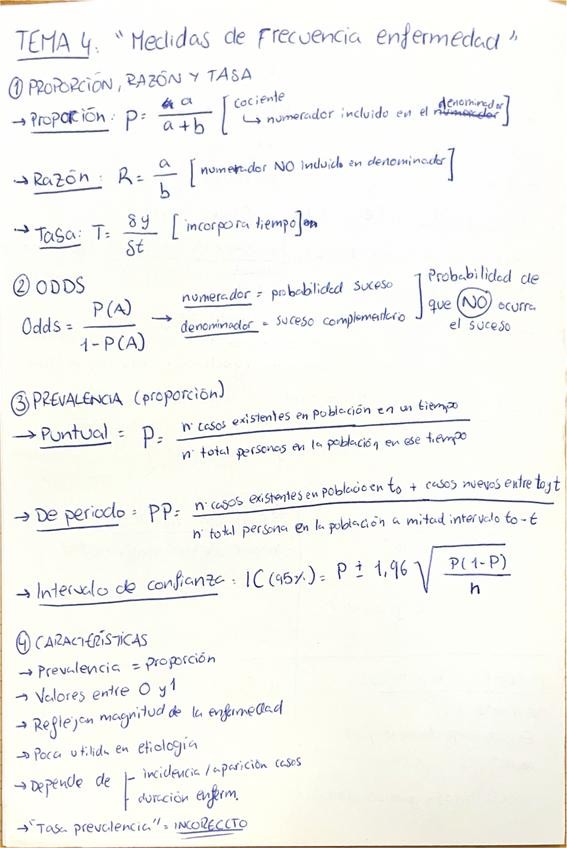 TEMA 4: "Medidas de Frecuencia enfermedad"
① PROPORCIÓN, RAZÓN Y TASA
→ Proporción: P = a / a+b [cociente ↳ numerador incluido en el denominador]
→ Razón: R = a / b [numerador NO incluido en denominador]
→ Tasa: T = δy / δt [incorpora tiempo]
② ODDS
Odds = P(A) / 1-P(A) → numerador = probabilidad suceso
denominador = suceso complementario
] Probabilidad de
que NO ocurra
el suceso
③ PREVALENCIA (proporción)
→ Puntual = P = n· casos existentes en población en un tiempo / n· total personas en la población en ese tiempo
→ De periodo = PP = n· casos existentes en població en t₀ + casos nuevos entre t₀ y t / n· total persona en la población a mitad intervalo t₀ - t
→ Intervalo de confianza: IC (95%) = P ± 1,96 √ P(1-P) / n
④ CARACTERÍSTICAS
→ Prevalencia = proporción
→ Valores entre 0 y 1
→ Reflejan magnitud de la enfermedad
→ Poca utilida en etiología
→ Depende de
- incidencia / aparición casos
- duración enferm.
→ "Tasa prevalencia" = INCORECCTO